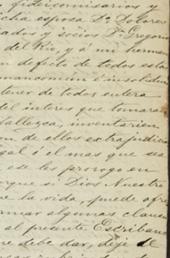 fideicomisarios y
cha esposa Dª Dolores
ados y socios Dn Gregorio
del Rio, y á mi herman
en defecto de todos esta
mancomun é insolidum
tener de todos entera
del interes que tomará
fallezca, inventarien
on de ellos extrajudicia
sal ó el mas que sea
se les prorogo en
rque si Dios Nuestro
e la vida, puede ofre
rmar algunas clausu
al presente Escribano
re debe dar, dejo de